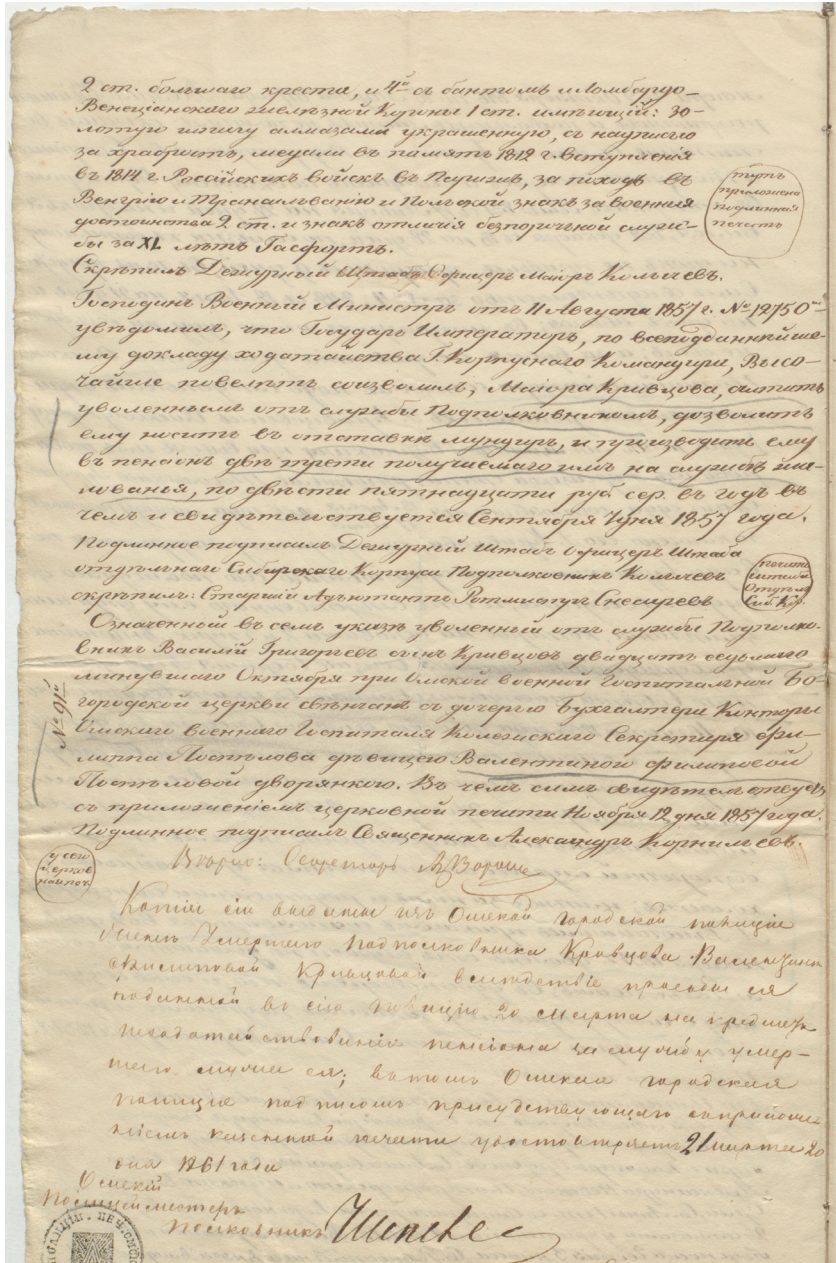 2 ст. большаго креста, и 4й съ бантомъ и Ломбардо-
Венеціанскаго желѣзной Короны 1 ст. имѣющій: зо-
лотую шпагу алмазами украшенную, съ надписью
за храбрость, медали въ память 1812 г. вступленія
въ 1814 г. Россійскихъ войскъ въ Парижъ, за походъ въ
Венгрію и Трансильванію и Польской знакъ за военныя
достоинства 2 ст. и знакъ отличія безпорочной служ-
бы за XL лѣтъ Гасфортъ.
тутъ
приложена
подлинная
печать
Скрѣпилъ Дежурный Штабъ Офицеръ Маіоръ Колычевъ.
Господинъ Военный Министръ отъ 11 Августа 1857 г. № 12750
увѣдомилъ, что Государь Императоръ, по всеподданнѣйше-
му докладу ходатайства Г. Корпуснаго Командира, Высо-
чайше повелѣть соизволилъ, Маіора Кривцова, считать
уволеннымъ отъ службы Подполковникомъ, дозволить
ему носить въ отставкѣ мундиръ, и производить ему
въ пенсіонъ двѣ трети получаемаго имъ на службѣ жа-
лованья, по двѣсти пятнадцати руб. сер. въ годъ въ
чемъ и свидѣтельствуется Сентября 7 дня 1857 года.
Подлинное подписалъ Дежурный Штабъ Офицеръ Штаба
отдѣльнаго Сибирскаго Корпуса Подполковникъ Колычевъ
скрѣпилъ: Старшій Адъютантъ Ротмистръ Снесаревъ
печать
штаба
Отдѣл
Сиб. Кор.
Означенный въ семъ указѣ уволенный отъ службы Подполко-
вникъ Василій Григорьевъ сынъ Кривцовъ двадцать седьмаго
минувшаго Октября при Омской военной Госпитальной Бо-
городской церкви вѣнчанъ съ дочерью Бухгалтера Конторы
Омскаго военнаго Госпиталя Коллежскаго Секретаря Фи-
липпа Поспѣлова дѣвицею Валентиною Филиповой
Поспѣловой дворянкою. Въ чемъ симъ свидѣтельствуетъ
съ приложеніемъ церковной печати Ноября 12 дня 1857 года.
Подлинное подписалъ Священникъ Александръ Корнильевъ.
№ 91й
у сего
церков
ная печ.
Вѣрно: Секретарь
Копія сія выдана изъ Омской городской полиціи
женѣ Умершаго Подполковника Кривцова Валентинѣ
Филиповой Кривцовой вслѣдствіе прозьбы ея
поданной въ сію полицію 20 марта на предметъ
исходатайствованія пенсіона за службу умер-
шаго мужа ея; въ томъ Омская городская
полиція подписомъ присудствующаго съ приложе-
ніемъ казенной печати удостовѣряетъ 21 марта
дня 1861 года
Омскій
Полицеймейстеръ
Полковникъ